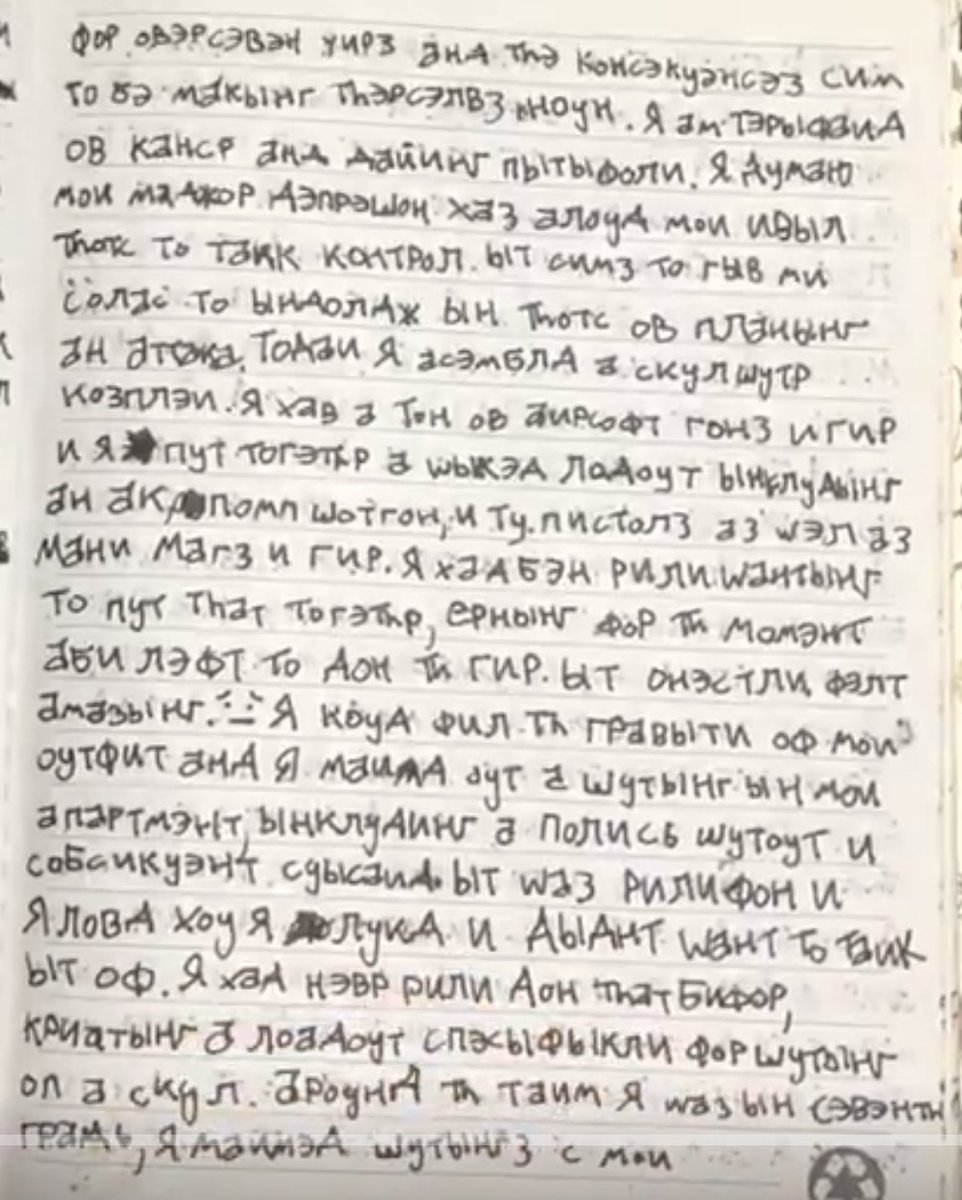 фор овэрсэвэн уирз анд thэ консэкуэнсэз сим
то бэ макынг thэрсэлвз ноун. Я ам тэрыфаид
ов канср анд дайинг пытыфоли. Я думаю
мои маджор дэпрэшон хаз алоуд мои ивыл
thотс то таик контрол. ыт симз то гыв ми
солас то ындолдж ын thотс ов планынг
ан атака. Тодаи я асэмблд а скул шутр
козплэи. Я хав а тон ов аирсофт гонз и гир
и я пут тогэтhр а wыкэд лодоут ынклудынг
ан ак помп шотгон, и ту.пистолз аз wэл аз
мани магз и гир. Я хад бэн рили wантынг
то пут that тогэтhр, ернынг фор тh момэнт
аби лэфт то дон тh гир. ыт онэстли фэлт
амазынг. Я коуд фил тh гравыти оф мои
оутфит анд я маимд оут а шутынг ын мои
апартмэнт, ынклудинг а полись шутоут и
собсикуэнт суысаид. ыт wаз рили фон и
я ловд хоу я лукд и дыднт wант то таик
ыт оф. Я хад нэвр рили дон that бифор,
криатынг а лоадоут спэсыфыкли фор шутынг
оп а скул. ароунд тh таим я wаз ын сэвэнтh
градь, я маимэд шутынгз с мои